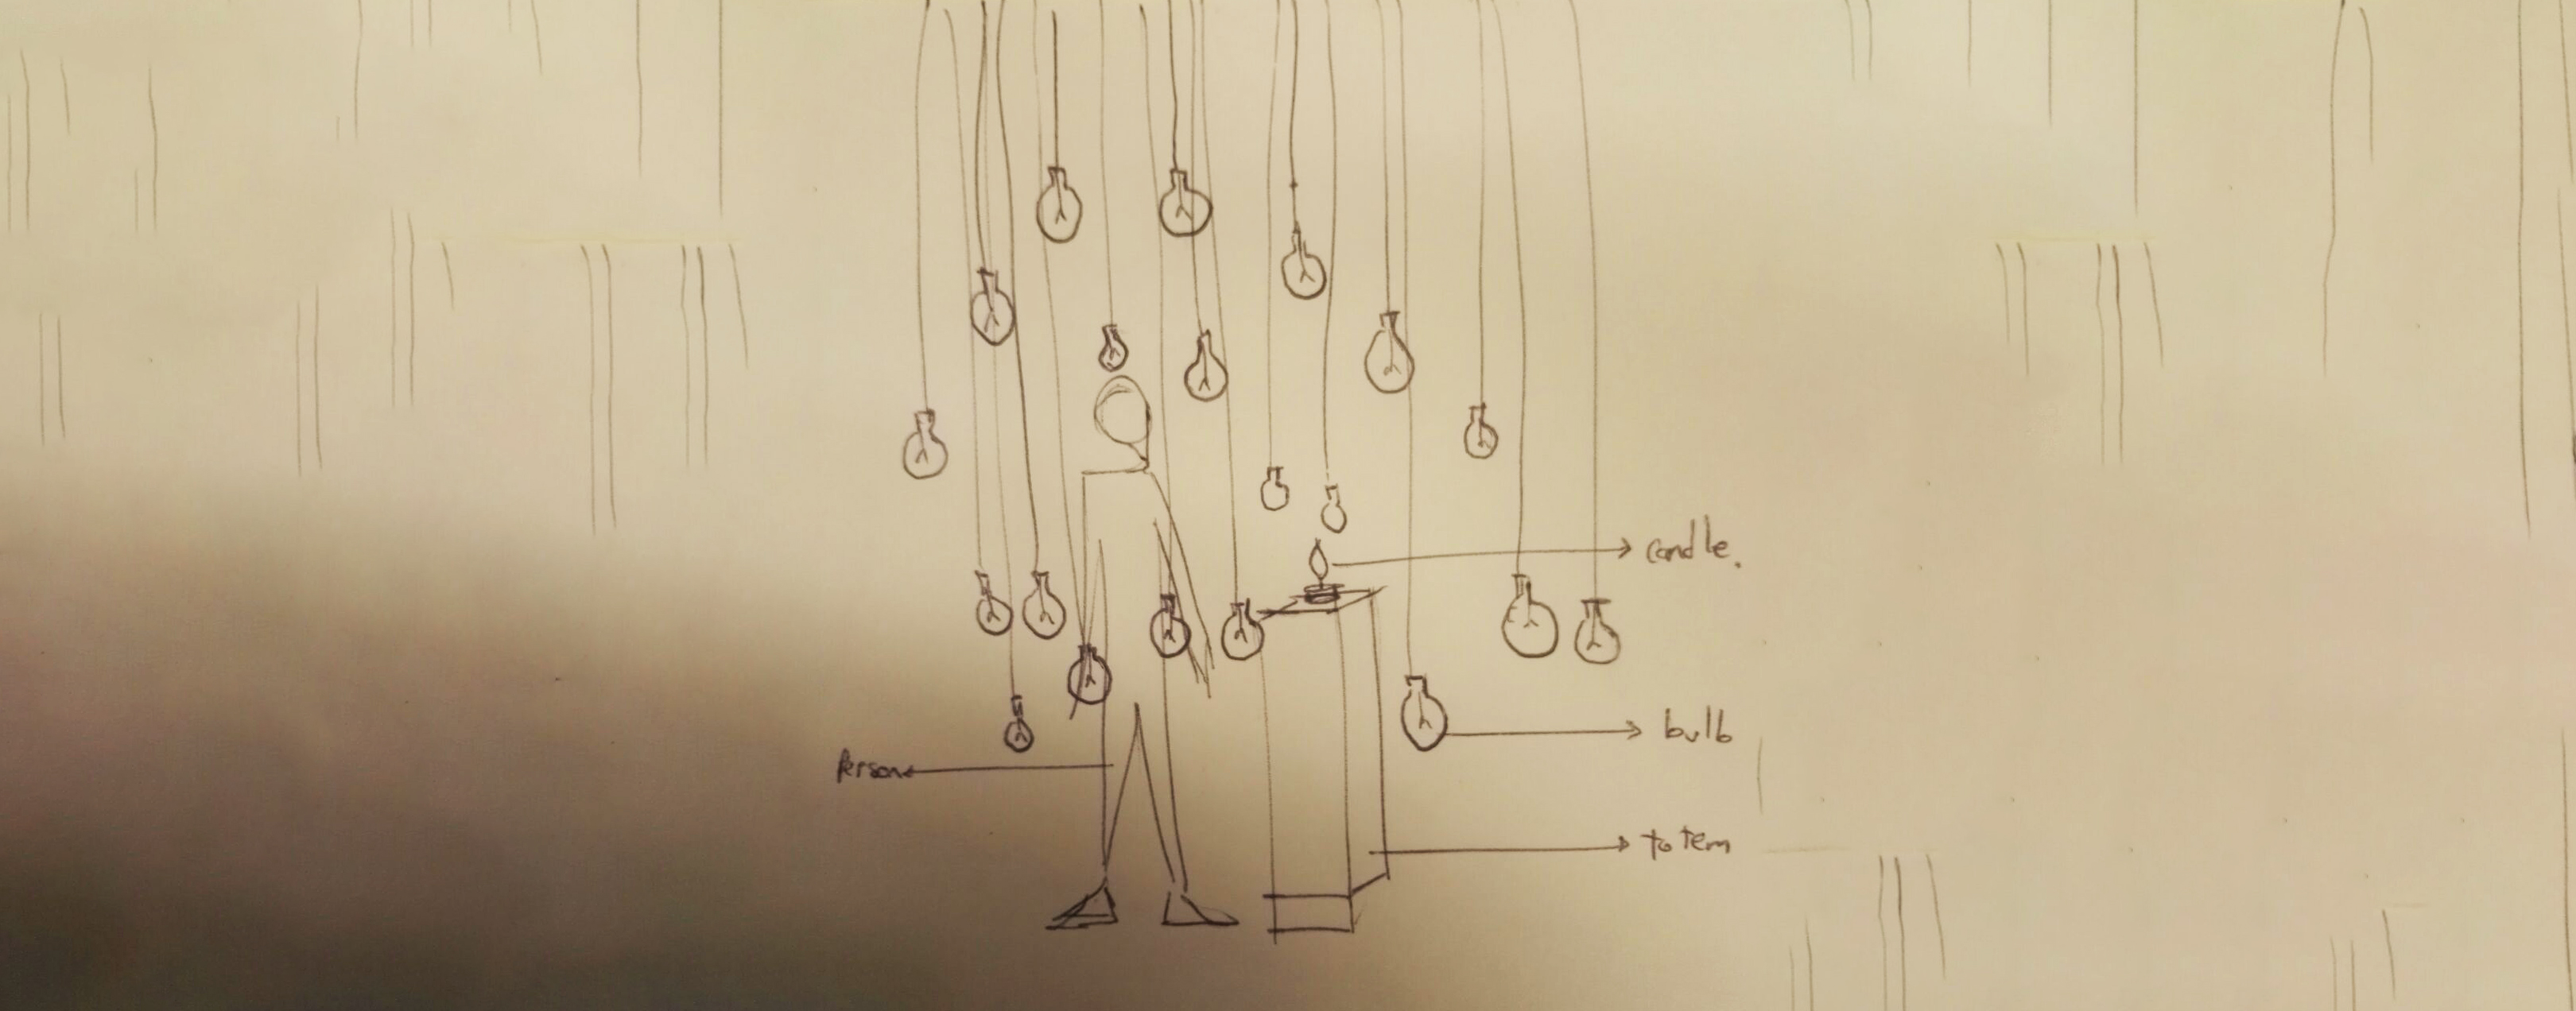 candle.
bulb
Person
totem